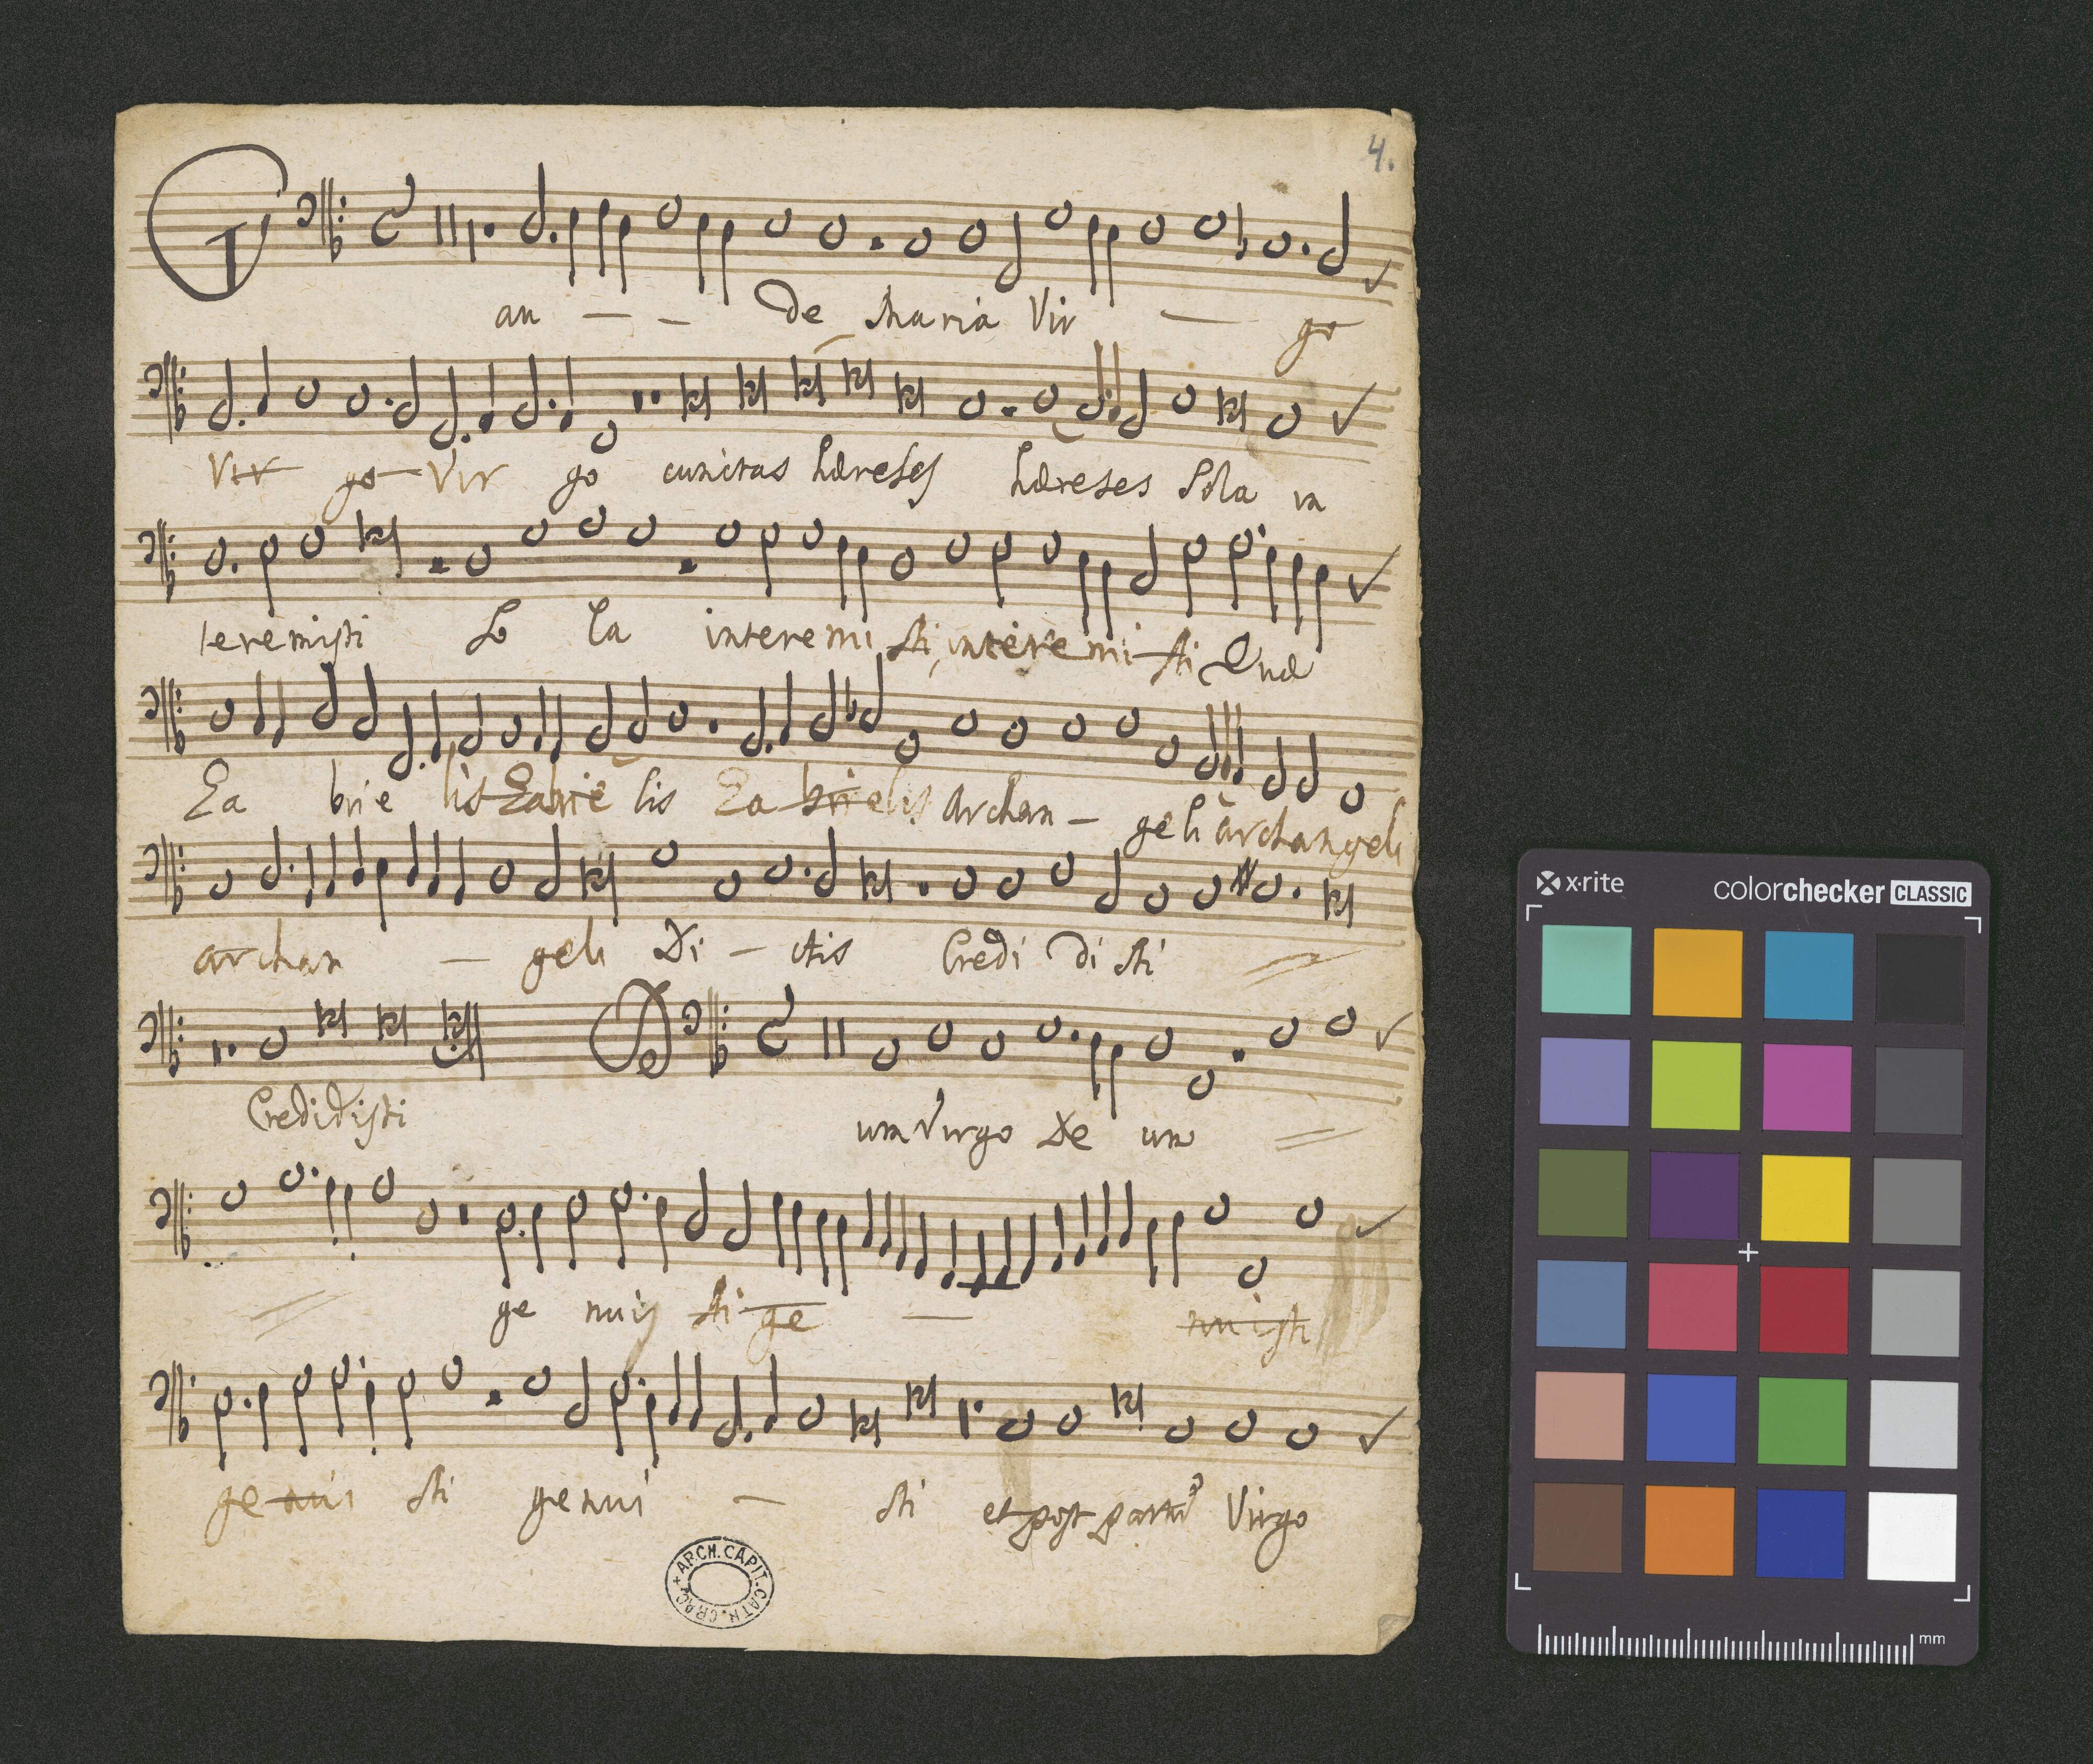 4.
Gau - - de Maria Vir - go
Vir go Vir go cunctas hæreses hæreses Sola in
teremisti So la interemi sti, interemi sti Quæ
Ga brie lis Gabrie lis Ga brielis archan - geli archangeli
archan - geli Di - ctis Credi di sti =
Credidisti Dum Virgo De um =
= ge nuis sti ge - nuisti
genui sti genui - sti et post partũ Virgo
ARCH. CAPIT. CATH. CRAC.
x·rite colorchecker CLASSIC
mm